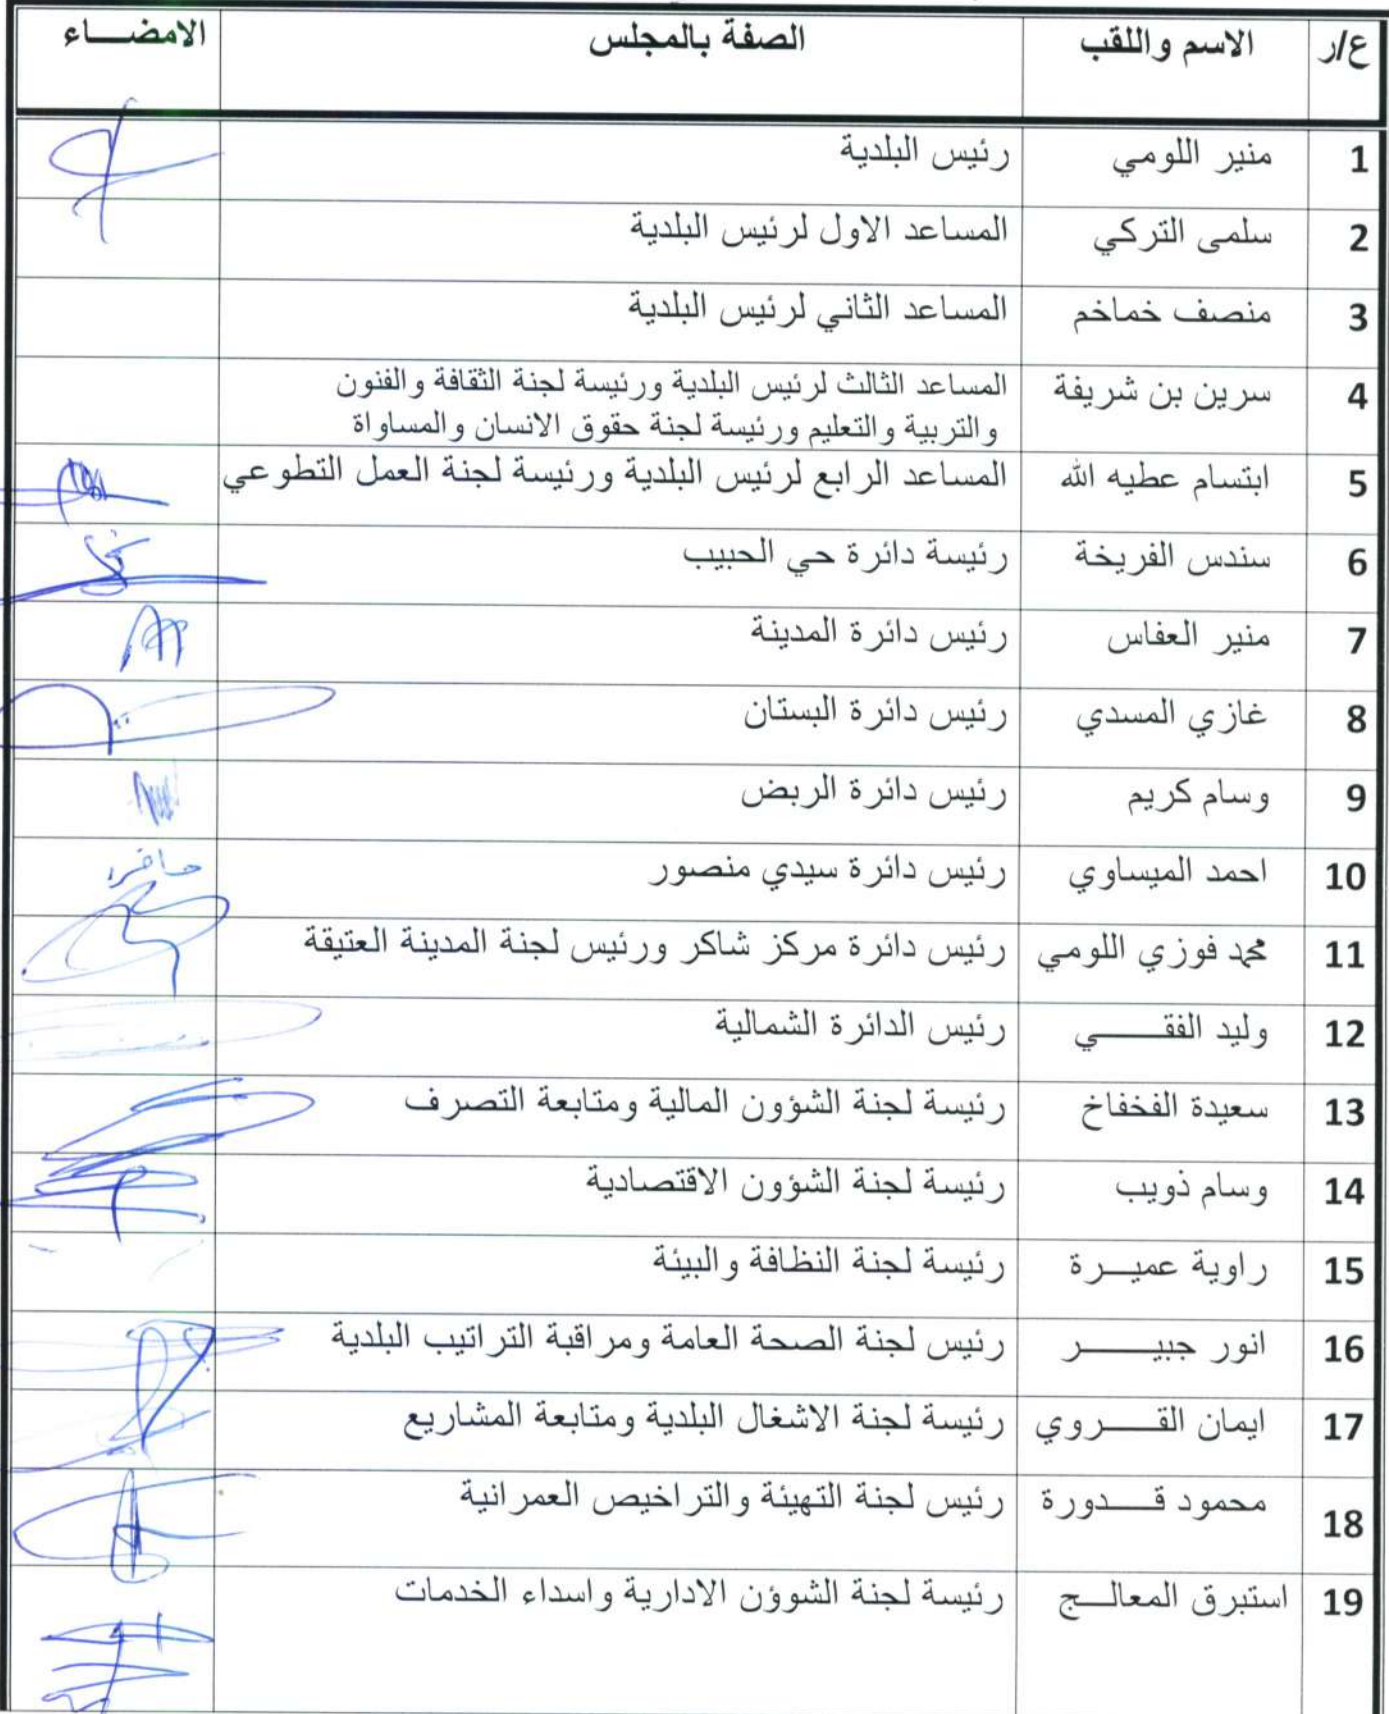 ع/ر الاسم واللقب الصفة بالمجلس الامضـــاء
1 منير اللومي رئيس البلدية
2 سلمى التركي المساعد الاول لرئيس البلدية
3 منصف خماخم المساعد الثاني لرئيس البلدية
4 سرين بن شريفة المساعد الثالث لرئيس البلدية ورئيسة لجنة الثقافة والفنون
والتربية والتعليم ورئيسة لجنة حقوق الانسان والمساواة
5 ابتسام عطيه الله المساعد الرابع لرئيس البلدية ورئيسة لجنة العمل التطوعي
6 سندس الفريخة رئيسة دائرة حي الحبيب
7 منير العفاس رئيس دائرة المدينة
8 غازي المسدي رئيس دائرة البستان
9 وسام كريم رئيس دائرة الربض
10 احمد الميساوي رئيس دائرة سيدي منصور
11 محمد فوزي اللومي رئيس دائرة مركز شاكر ورئيس لجنة المدينة العتيقة
12 وليد الفقـــــي رئيس الدائرة الشمالية
13 سعيدة الفخفاخ رئيسة لجنة الشؤون المالية ومتابعة التصرف
14 وسام ذويب رئيسة لجنة الشؤون الاقتصادية
15 راوية عميـــرة رئيسة لجنة النظافة والبيئة
16 انور جبيـــــر رئيس لجنة الصحة العامة ومراقبة التراتيب البلدية
17 ايمان القـــــروي رئيسة لجنة الاشغال البلدية ومتابعة المشاريع
18 محمود قـــــدورة رئيس لجنة التهيئة والتراخيص العمرانية
19 استبرق المعالـــج رئيسة لجنة الشوؤن الادارية واسداء الخدمات